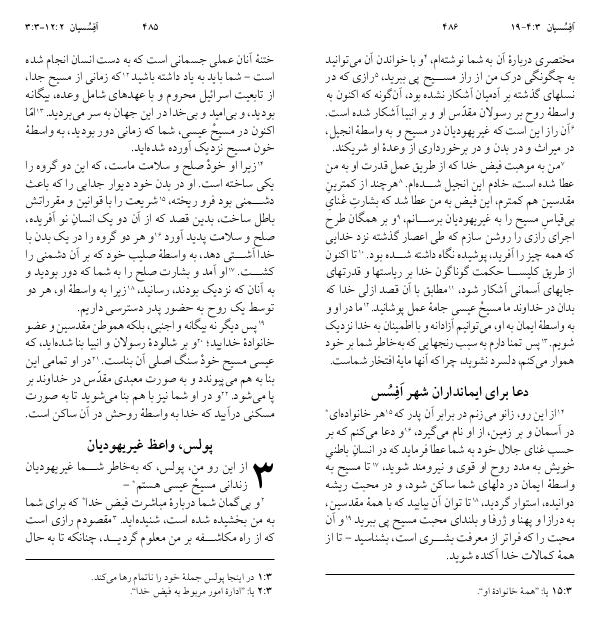 ۴۸۵ اَفِسُسیان ۱۲:۲-۳:۳
ختنهٔ آنان عملی جسمانی است که به دست انسان انجام شده
است - شما باید به یاد داشته باشید ۱۲که زمانی از مسیح جدا،
از تابعیت اسرائیل محروم و با عهدهای شامل وعده، بیگانه
بودید، و بی‌امید و بی‌خدا در این جهان به سر می‌بردید. ۱۳امّا
اکنون در مسیحْ عیسی، شما که زمانی دور بودید، به واسطهٔ
خون مسیح نزدیک آورده شده‌اید.
۱۴زیرا او خودْ صلح و سلامت ماست، که این دو گروه را
یکی ساخته است. او در بدن خود دیوار جدایی را که باعث
دشمنی بود فرو ریخته، ۱۵شریعت را با قوانین و مقرراتش
باطل ساخت، بدین قصد که از آن دو یک انسان نو آفریده،
صلح و سلامت پدید آورد ۱۶و هر دو گروه را در یک بدن با
خدا آشتی دهد، به واسطهٔ صلیب خود که بر آن دشمنی را
کشت. ۱۷او آمد و بشارت صلح را به شما که دور بودید و
به آنان که نزدیک بودند، رسانید، ۱۸زیرا به واسطهٔ او، هر دو
توسط یک روح به حضور پدر دسترسی داریم.
۱۹پس دیگر نه بیگانه و اجنبی، بلکه هموطن مقدسین و عضو
خانوادهٔ خدایید؛ ۲۰و بر شالودهٔ رسولان و انبیا بنا شده‌اید، که
عیسی مسیح خودْ سنگ اصلی آن بناست. ۲۱در او تمامی این
بنا به هم می‌پیوندد و به صورت معبدی مقدّس در خداوند بر
پا می‌شود. ۲۲و در او شما نیز با هم بنا می‌شوید تا به صورت
مسکنی درآیید که خدا به واسطهٔ روحش در آن ساکن است.
پولس، واعظ غیریهودیان
۳ از این رو من، پولس، که به‌خاطر شما غیریهودیان
زندانی مسیحْ عیسی هستم* -
۲و بی‌گمان شما دربارهٔ مباشرت فیض خدا* که برای شما
به من بخشیده شده است، شنیده‌اید. ۳مقصودم رازی است
که از راه مکاشفه بر من معلوم گردید، چنانکه تا به حال
۱:۳ در اینجا پولس جملهٔ خود را ناتمام رها می‌کند.
۲:۳ یا: "ادارهٔ امور مربوط به فیض خدا".
اَفِسُسیان ۴:۳-۱۹ ۴۸۶
مختصری دربارهٔ آن به شما نوشته‌ام، ۴و با خواندن آن می‌توانید
به چگونگی درک من از راز مسیح پی ببرید، ۵رازی که در
نسلهای گذشته بر آدمیان آشکار نشده بود، آن‌گونه که اکنون به
واسطهٔ روح بر رسولان مقدّس او و بر انبیا آشکار شده است.
۶آن راز این است که غیریهودیان در مسیح و به واسطهٔ انجیل،
در میراث و در بدن و در برخورداری از وعدهٔ او شریکند.
۷من به موهبت فیض خدا که از طریق عمل قدرت او به من
عطا شده است، خادم این انجیل شده‌ام. ۸هرچند از کمترین
مقدسین هم کمترم، این فیض به من عطا شد که بشارتِ غنای
بی‌قیاسِ مسیح را به غیریهودیان برسانم، ۹و بر همگان طرح
اجرای رازی را روشن سازم که طی اعصار گذشته نزد خدایی
که همه چیز را آفرید، پوشیده نگاه داشته شده بود. ۱۰تا اکنون
از طریق کلیسا حکمت گوناگون خدا بر ریاستها و قدرتهای
جایهای آسمانی آشکار شود، ۱۱مطابق با آن قصد ازلی خدا که
بدان در خداوند ما مسیحْ عیسی جامهٔ عمل پوشانید. ۱۲ما در او و
به واسطهٔ ایمان به او، می‌توانیم آزادانه و با اطمینان به خدا نزدیک
شویم. ۱۳پس تمنا دارم به سبب رنجهایی که به‌خاطر شما بر خود
هموار می‌کنم، دلسرد نشوید، چرا که آنها مایهٔ افتخار شماست.
دعا برای ایمانداران شهر اَفِسُس
۱۴از این رو، زانو می‌زنم در برابر آن پدر که ۱۵هر خانواده‌ای*
در آسمان و بر زمین، از او نام می‌گیرد، ۱۶و دعا می‌کنم که بر
حسب غنای جلال خود به شما عطا فرماید که در انسانِ باطنیِ
خویش به مدد روح او قوی و نیرومند شوید، ۱۷تا مسیح به
واسطهٔ ایمان در دلهای شما ساکن شود، و در محبت ریشه
دوانیده، استوار گردید، ۱۸تا توان آن بیابید که با همهٔ مقدسین،
به درازا و پهنا و ژرفا و بلندای محبت مسیح پی ببرید ۱۹و آن
محبت را که فراتر از معرفت بشری است، بشناسید - تا از
همهٔ کمالات خدا آکنده شوید.
۱۵:۳ یا: "همهٔ خانوادهٔ او".